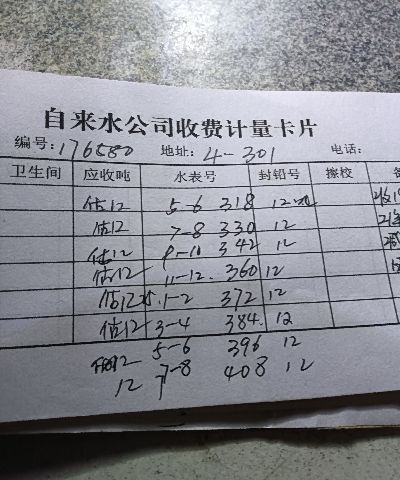 自来水公司收费计量卡片
编号: 176580 地址: 4-301 电话:
卫生间 应收吨 水表号 封铅号 擦校
估12 5-6 318 12
估12 7-8 330 12
估12 9-10 342 12
估12 11-12. 360 12
估12 25.1-2 372 12
估12 3-4 384. 12
估12 5-6 396 12
12 7-8 408 12